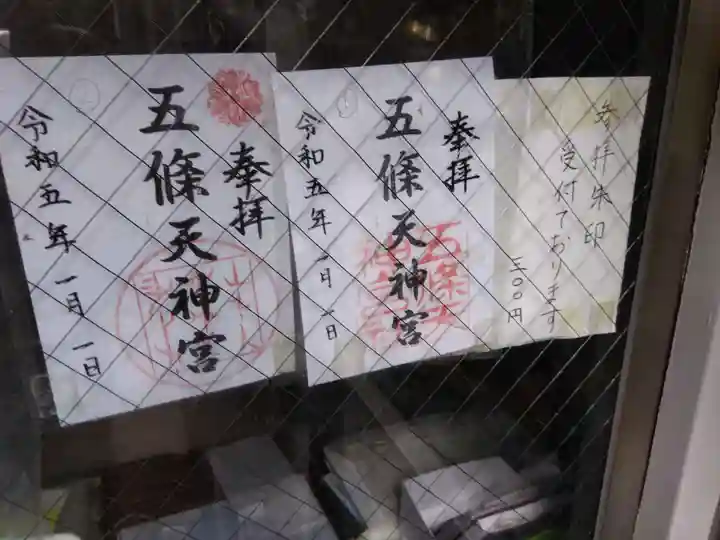 参拝朱印
受付ております
三〇〇円
奉拝
五條天神宮
令和五年 一月 一日
奉拝
五條天神宮
令和五年 一月 一日